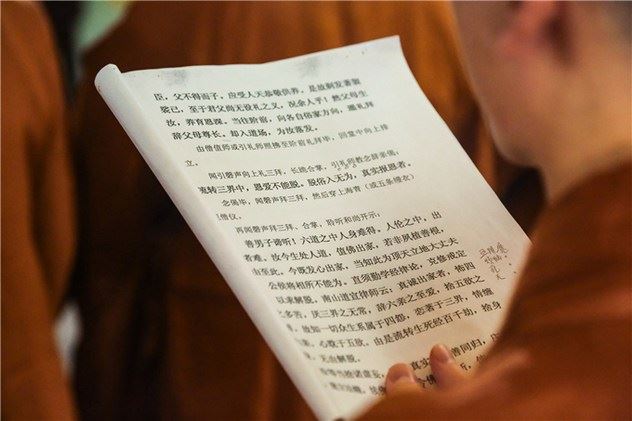 臣，父不得而子，应受人天恭敬供养。是故剃发著袈
裟已，至于君父尚无设礼之义，况余人乎！然父母生
汝，养育恩深。当住阶前，向各自俗家方向，遥礼拜
辞父母尊长。却入道场，为汝落发。
由僧值师或引礼师照拂至阶前礼拜毕，回堂中向上排
立。
闻引磬声向上礼三拜，长跪合掌，引礼师教念辞亲偈：
流转三界中，恩爱不能脱。脱俗入无为，真实报恩者。
念偈毕，闻磬声拜三拜，然后穿上海青（或五条缦衣）
僧仪。
再闻磬声拜三拜、合掌，聆听和尚开示：
善男子谛听！六道之中人身难得。人伦之中，出
者难。故今生处人道，值佛出家，若非夙植善根，
由至此。今既发心出家，当知此为顶天立地大丈夫
公侯将相所不能为。直须勤学经律论，克修戒定
以求解脱。南山道宣律师云：真诚出家者，怖四
之多苦，厌三界之无常，辞六亲之至爱，舍五欲之
故知一切众生系属于四怨，恋著于三界，情缠
心耽于五欲。由是流转生死经百千劫，舍身
无由解脱。
真实
善同归，